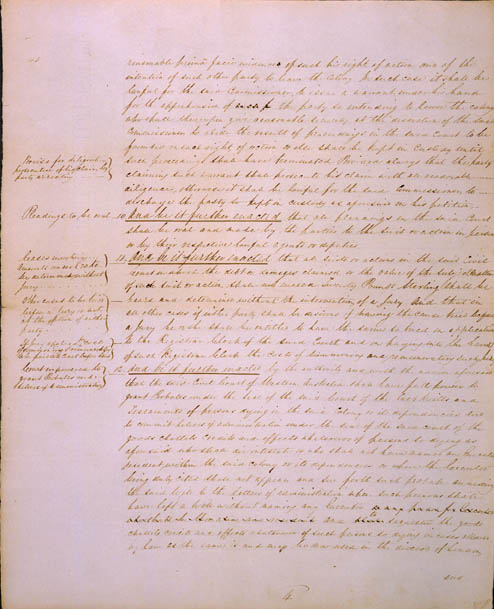 reasonable prima facie evidence of such his right of action and of the
intention of such other party to leave the Colony in such case it shall be
lawful for the said Commissioner to issue a warrant under his hand
for the apprehension of the party so intending to leave the colony
who shall thereupon give reasonable security at the discretion of the said
Commissioner to abide the result of proceedings in the said Court to be
founded on such right of action or else shall be kept in custody until
such proceedings shall have terminated Provided always that the party
claiming such warrant shall prosecute his claim with all reasonable
diligence, otherwise it shall be lawful for the said Commissioner to
discharge the party so kept in custody as aforesaid on his petition.
Proviso for diligent
prosecution of his claim by
party
Pleadings to be oral 10 And be it further enacted that all pleadings in the said Court
shall be oral and made by the parties to the suits or action in person
or by their respective lawful agents or deputies
Cases involving
amounts under £
be determined without
jury
11 And be it further enacted that all suits or actions in the said Civil
Court wherein the debt or damages claimed or the value of the subject matter
of such suit or action shall not exceed Pounds Sterling shall be
heard and determined without the intervention of a jury And that in
all other cases if either party shall be desirous of having the cause tried before
a jury he she shall be entitled to have the same so tried on application
to the Registrar Clerk of the said Court and on paying into the hands
of such Registrar Clerk the costs of summoning and remunerating such jury
Other cases to be tried
before a Jury
at the option of either
party
Court empowered to
grant Probates and
Letters of Administration
12 And be it further enacted by the authority and with the advice aforesaid
that the said Civil Court of Western Australia shall have full power to
grant Probates under the seal of the said Court of the last Wills and
Testaments of persons dying in the said Colony or its dependencies and
to commit letters of administration under the seal of the said court of the
goods chattels credits and effects whatsoever of persons so dying as
aforesaid who shall die intestate or who shall not have named an executor
resident within the said colony or its dependencies or where the Executor
being duly cited shall not appear and sue forth such probate annexing
the said will to the letters of administration when such persons shall
have left a will without naming any Executor or any person for Executor
and to sequester the goods
chattels credits and effects whatsoever of such persons so dying in cases allowed
by law as the same is and may be now used in the diocese of London
and
4